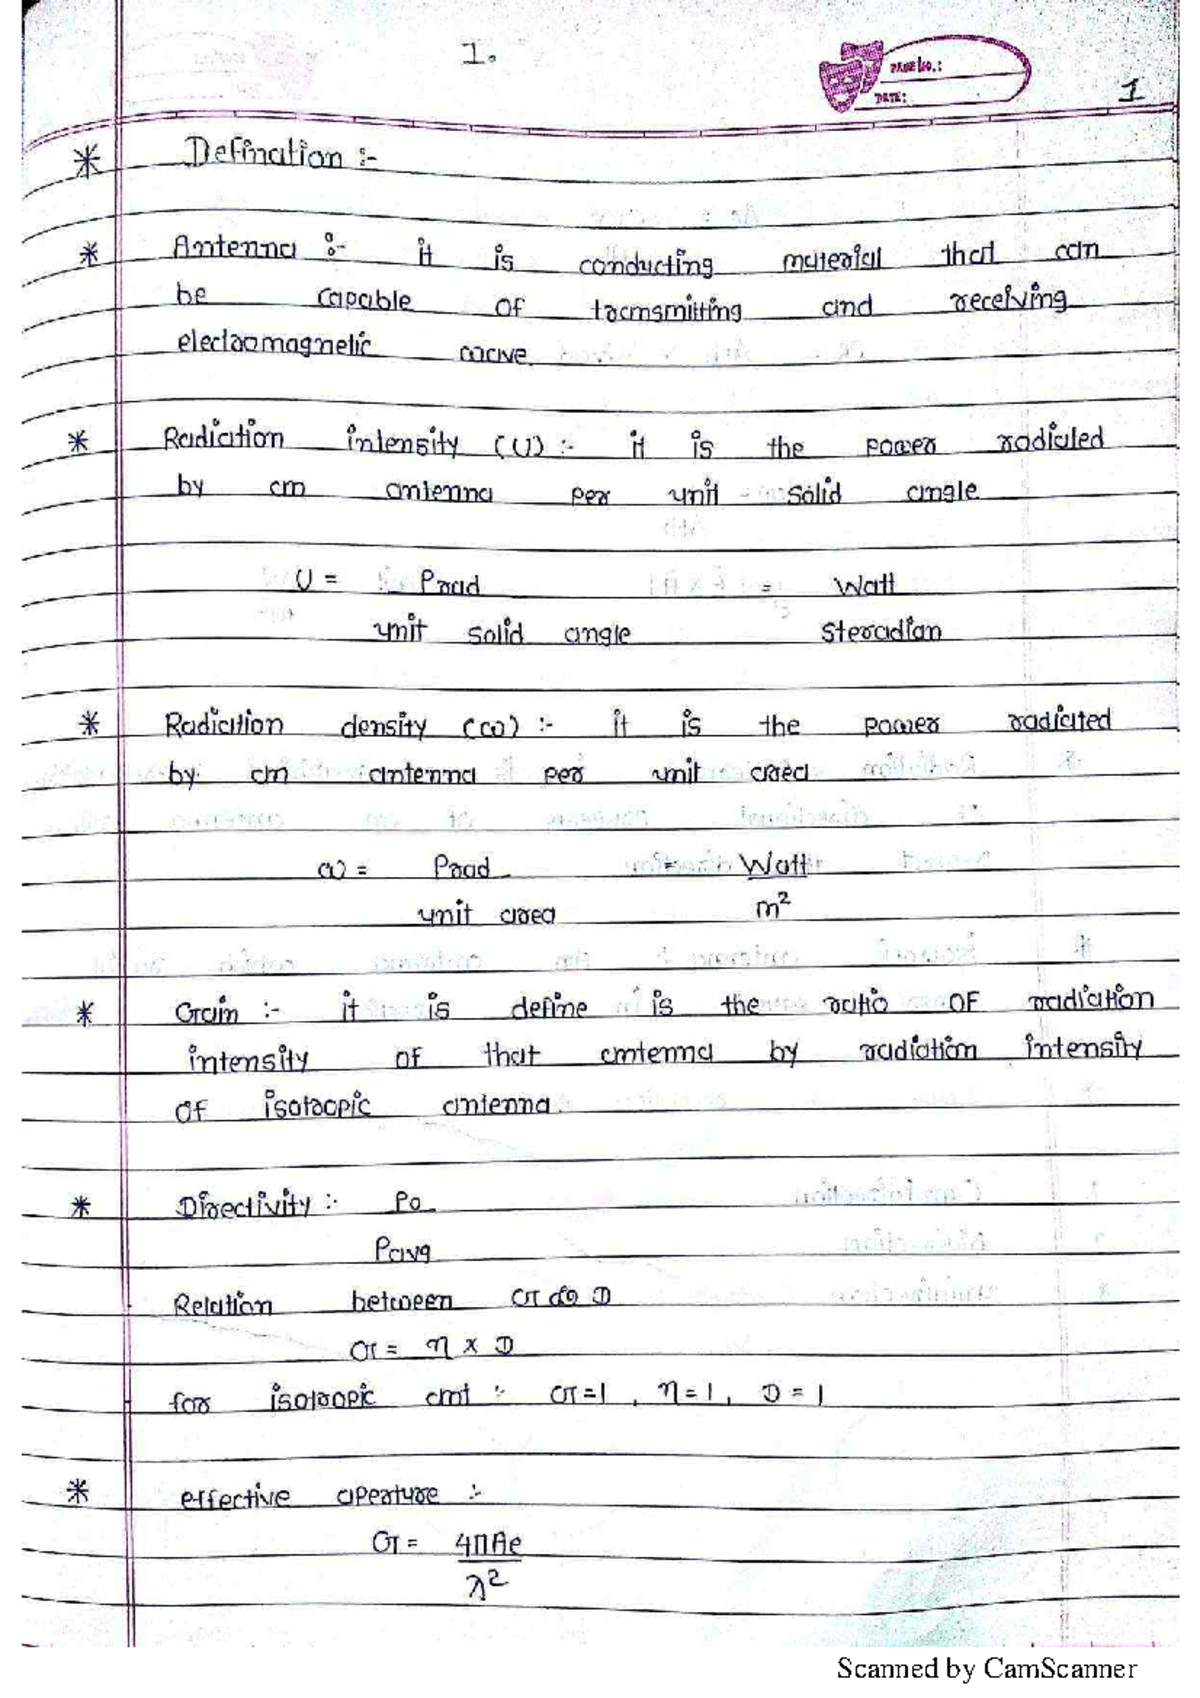 1.
PAGE NO.:
DATE:
1
* Defination :-
* Antenna :- it is conducting material that can
be capable of tacnsmitting and receiving
electromagnetic wave.
* Radiation intensity (U) :- it is the power radiated
by an antenna per unit solid angle
U = Prad = Watt
unit solid angle steradian
* Radiation density (ω) :- it is the power radiated
by an antenna per unit area
ω = Prad = Watt
unit area m²
* Gain :- it is define is the ratio of radiation
intensity of that antenna by radiation intensity
of isotropic antenna.
* Directivity :- Po
Pavg
Relation between G & D
G = η x D
for isotropic ant :- G=1, η=1, D=1
* effective aperture :-
G = 4πAe
λ²
Scanned by CamScanner